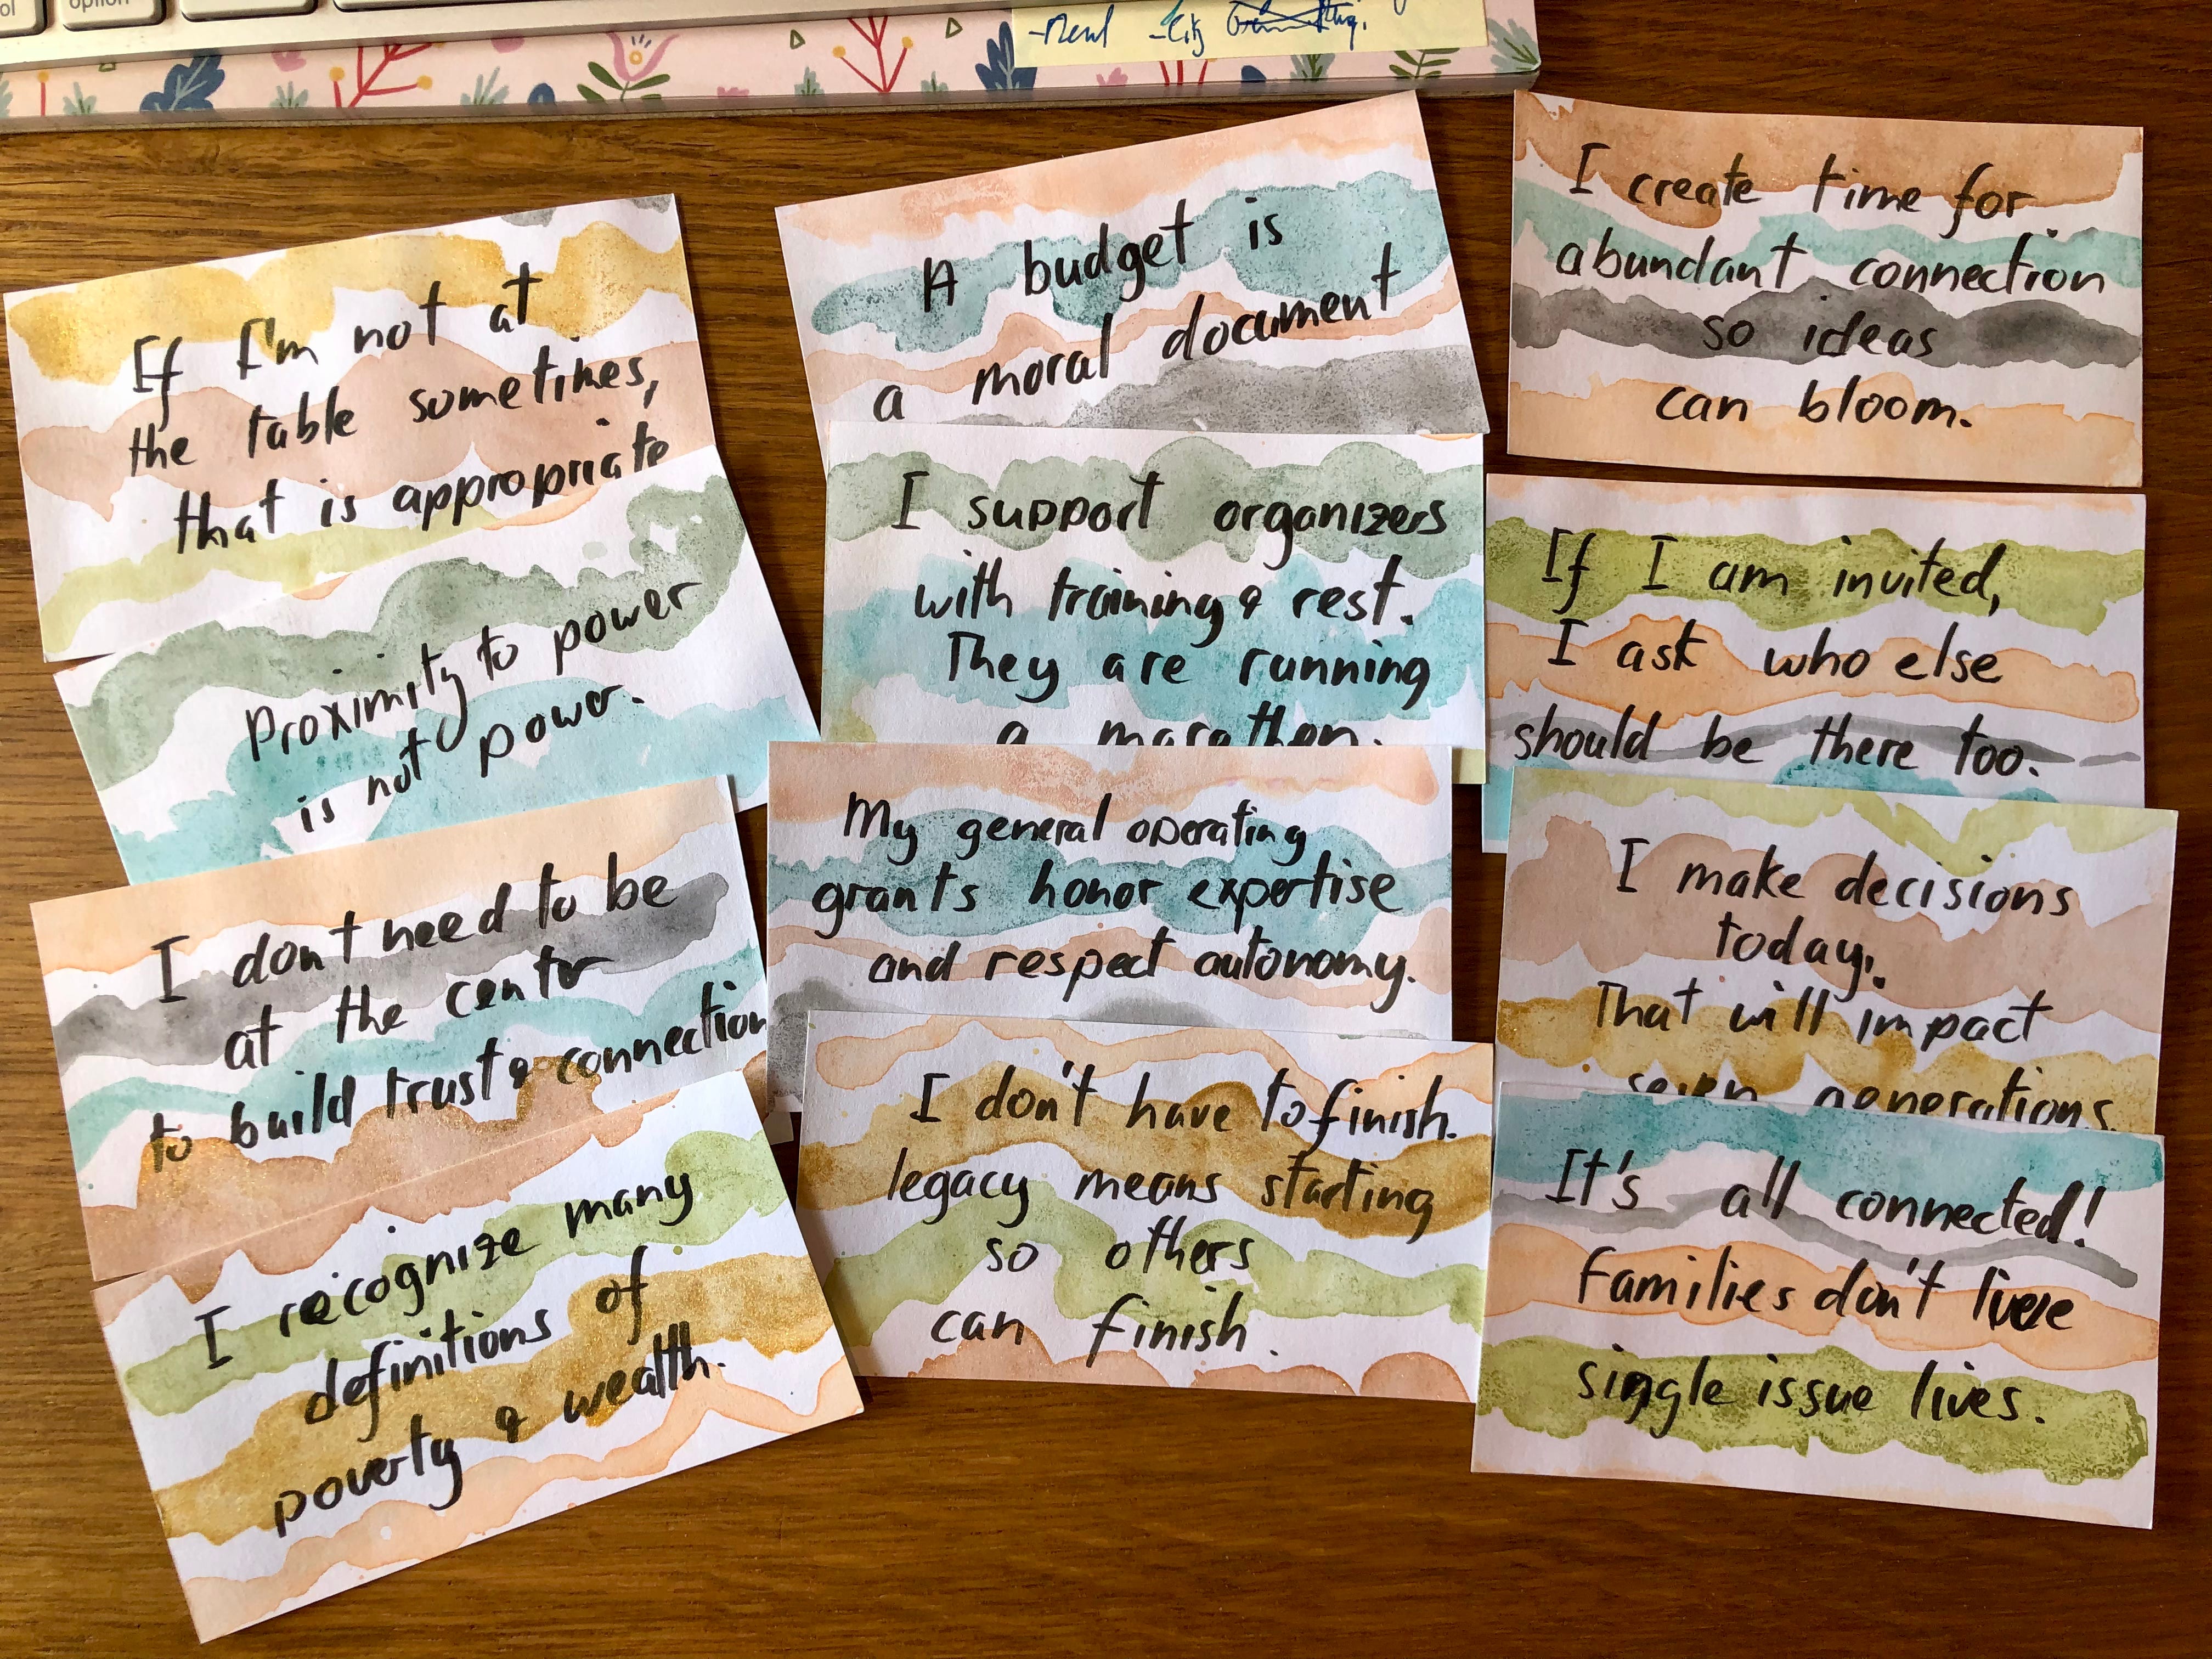 option
-City
If I'm not at
the table sometimes,
that is appropriate
Proximity to power
is not power.
I don't need to be
at the centr
to build trust & connection
I recognize many
definitions of
poverty & wealth.
A budget is
a moral document
I support organizers
with training & rest.
They are running
a marathon.
My general operating
grants honor expertise
and respect autonomy.
I don't have to finish.
legacy means starting
so others
can finish.
I create time for
abundant connection
so ideas
can bloom.
If I am invited,
I ask who else
should be there too.
I make decisions
today.
That will impact
seven generations.
It's all connected!
Families don't live
single issue lives.